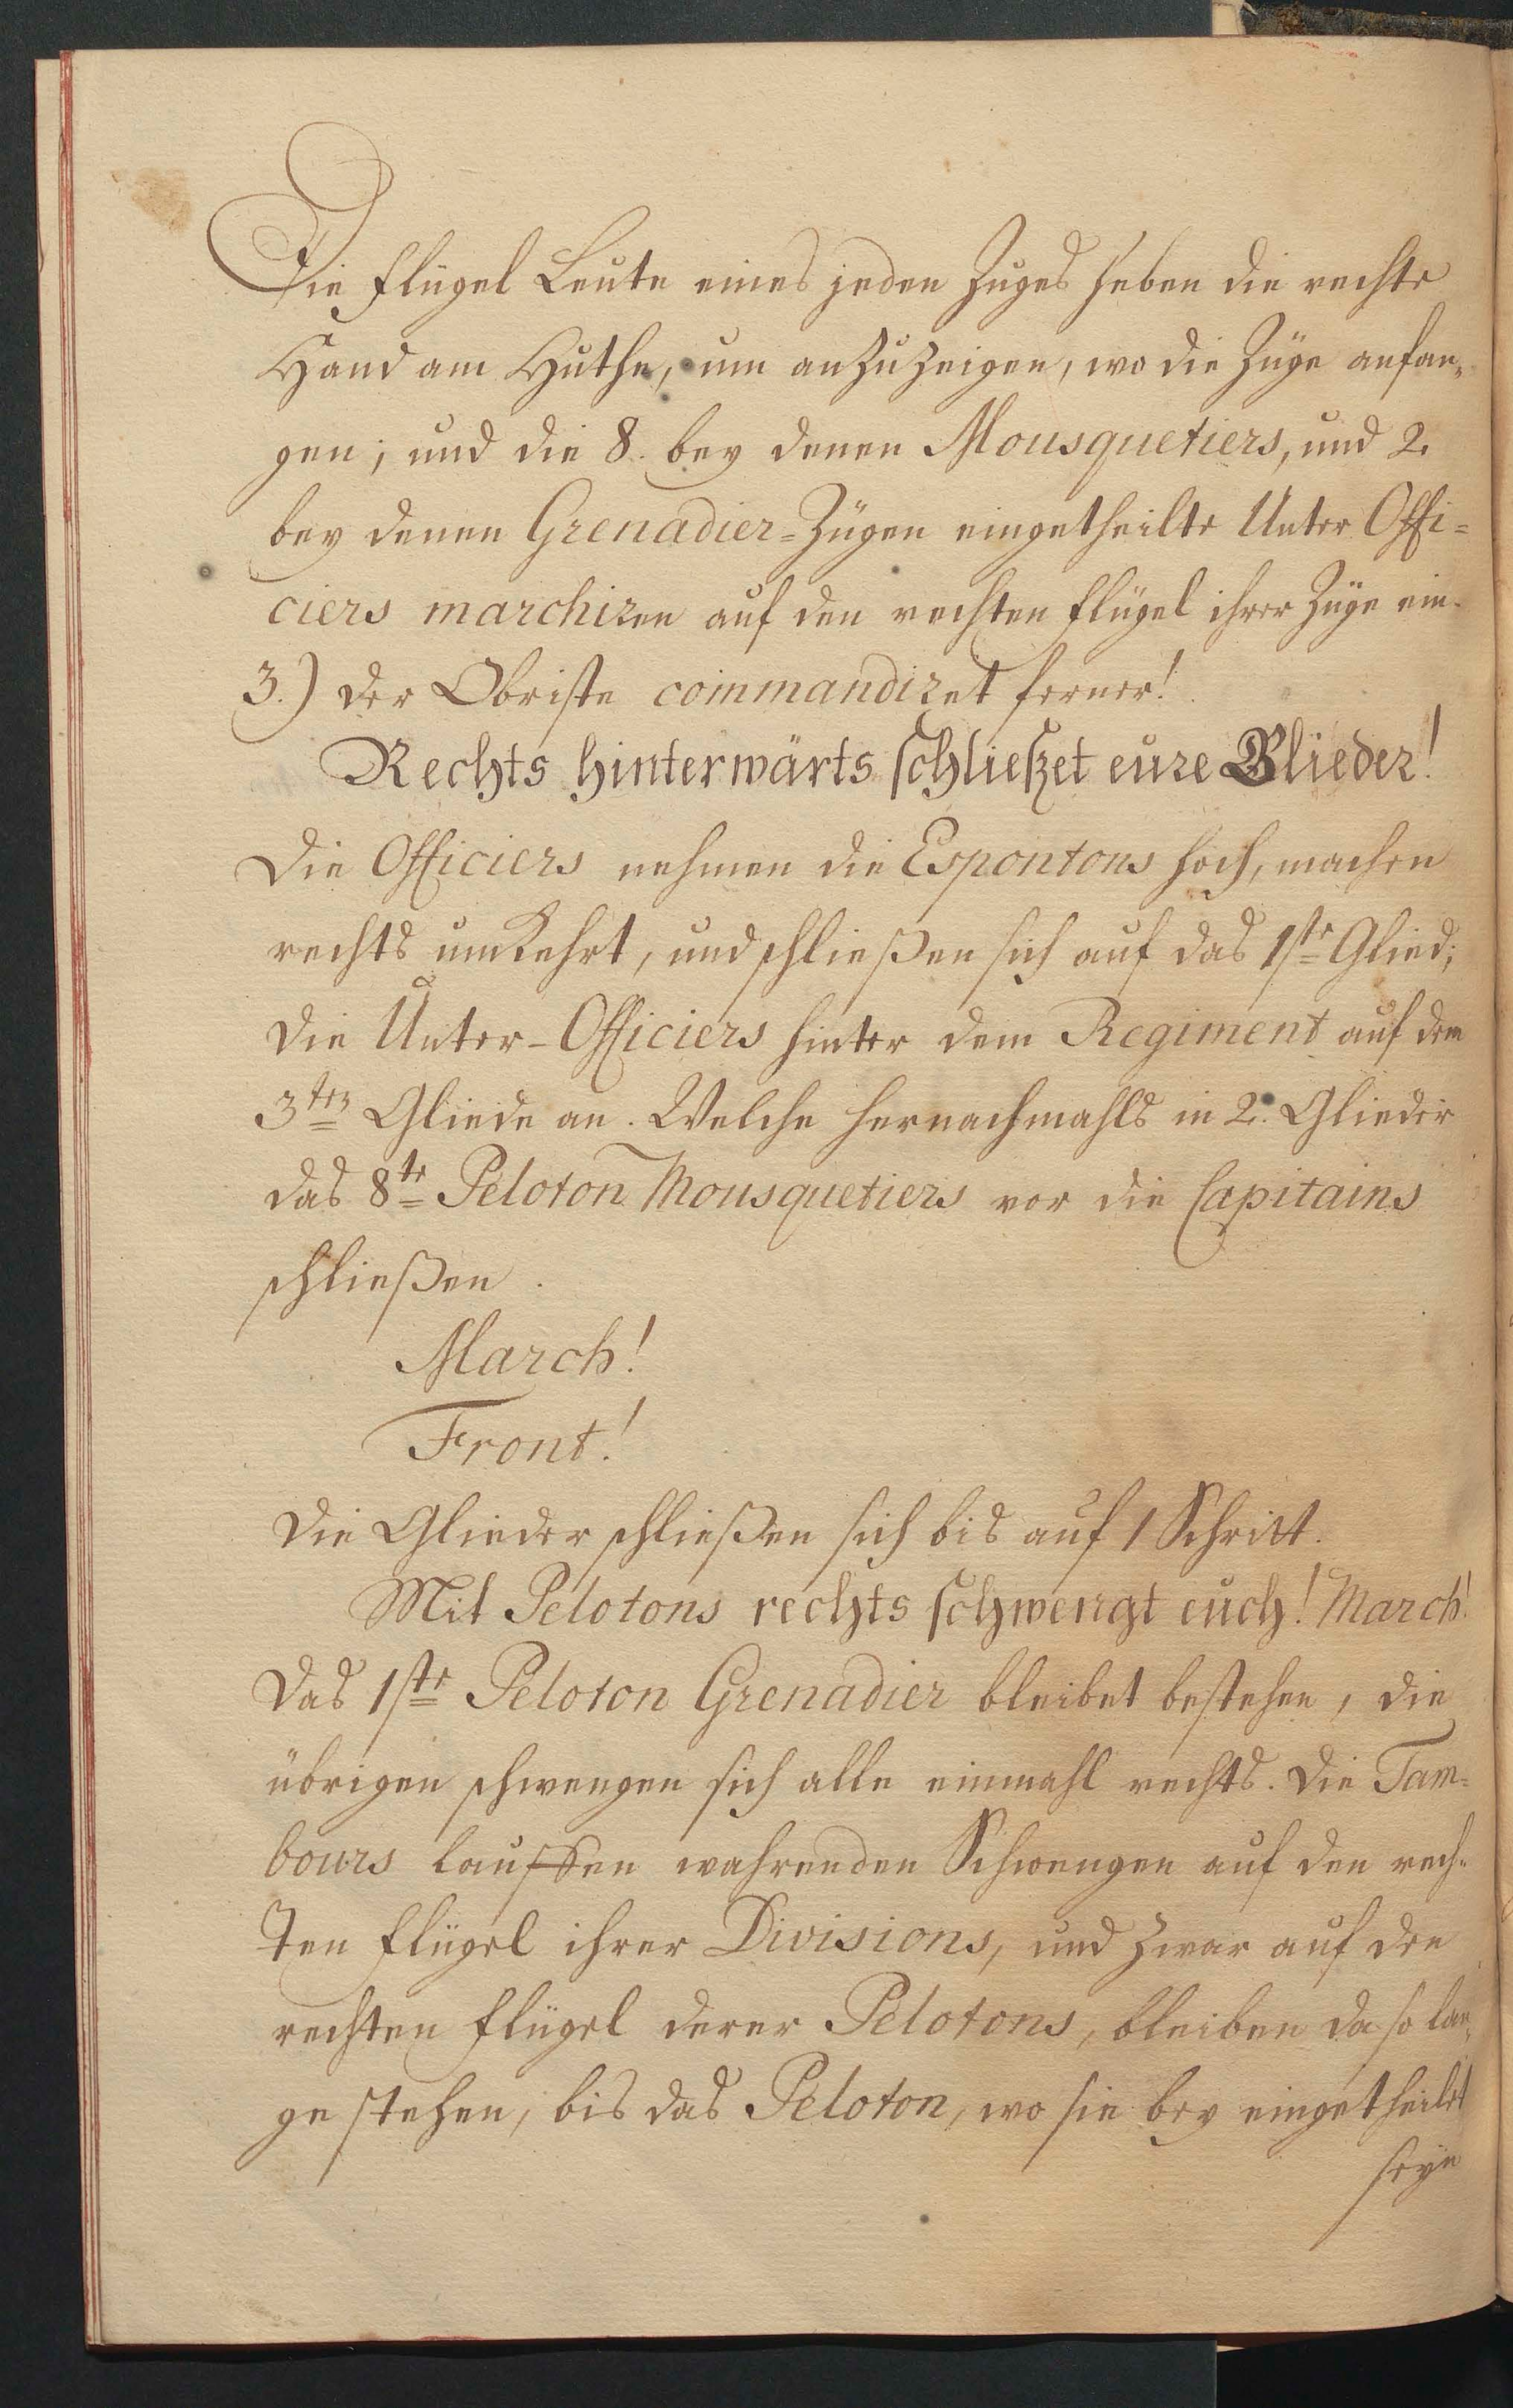 Die Flügel Leute eines jeden Zuges heben die rechte
Hand am Huthe, um anzuzeigen, wo die Züge anfan-
gen; und die 8. bey denen Mousquetiers, und 2.
bey denen Grenadier-Zügen eingetheilte Unter Offi-
ciers marchiren auf den rechten Flügel ihrer Züge ein.
3.) der Obriste commandiret ferner!
Rechts hinterwärts schließet eure Glieder!
Die Officiers nehmen die Espontons hoch, machen
rechts umkehrt, und schließen sich auf das 1ste Glied;
die Unter-Officiers hinter dem Regiment auf dem
3ten Gliede an. Welche hernachmahls in 2. Glieder
das 8te Peloton Mousquetiers vor die Capitains
schließen.
March!
Front!
Die Glieder schließen sich bis auf 1 Schritt.
Mit Pelotons rechts schwengt euch! March!
Das 1ste Peloton Grenadier bleibet bestehen, die
übrigen schwengen sich alle einmahl rechts. Die Tam-
bours lauffen wahrenden Schwengen auf den rech-
ten Flügel ihrer Divisions, und zwar auf den
rechten Flügel derer Pelotons, bleiben da so lan-
ge stehen, bis das Peloton, wo sie bey eingetheilet
seyn